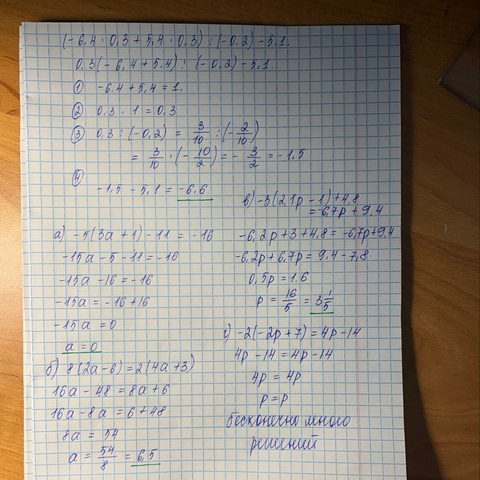 (-6,4 · 0,3 + 5,4 · 0,3) : (-0,2) - 5,1.
0,3(-6,4 + 5,4) : (-0,2) - 5,1
① -6,4 + 5,4 = 1.
② 0,3 · 1 = 0,3
③ 0,3 : (-0,2) = 3/10 : (-2/10)
= 3/10 · (-10/2) = -3/2 = -1,5
④
-1,5 - 5,1 = -6,6
а) -5(3a + 1) - 11 = -16
-15a - 5 - 11 = -16
-15a - 16 = -16
-15a = -16 + 16
-15a = 0
a = 0
б) 8(2a - 6) = 2(4a + 3)
16a - 48 = 8a + 6
16a - 8a = 6 + 48
8a = 54
a = 54/8 = 6,5
в) -3(2,1p - 1) + 4,8
= -6,7p + 9,4
-6,2p + 3 + 4,8 = -6,7p + 9,4
-6,2p + 6,7p = 9,4 - 7,8
0,5p = 1.6
p = 16/5 = 3 1/5
г) -2(-2p + 7) = 4p - 14
4p - 14 = 4p - 14
4p = 4p
p = p
бесконечно много
решений